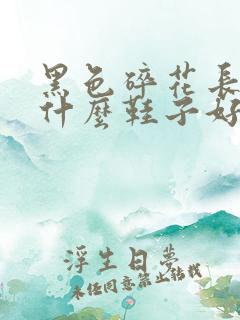 黑色碎花長
什麼鞋子好
浮生日夢
未經同意禁止轉載